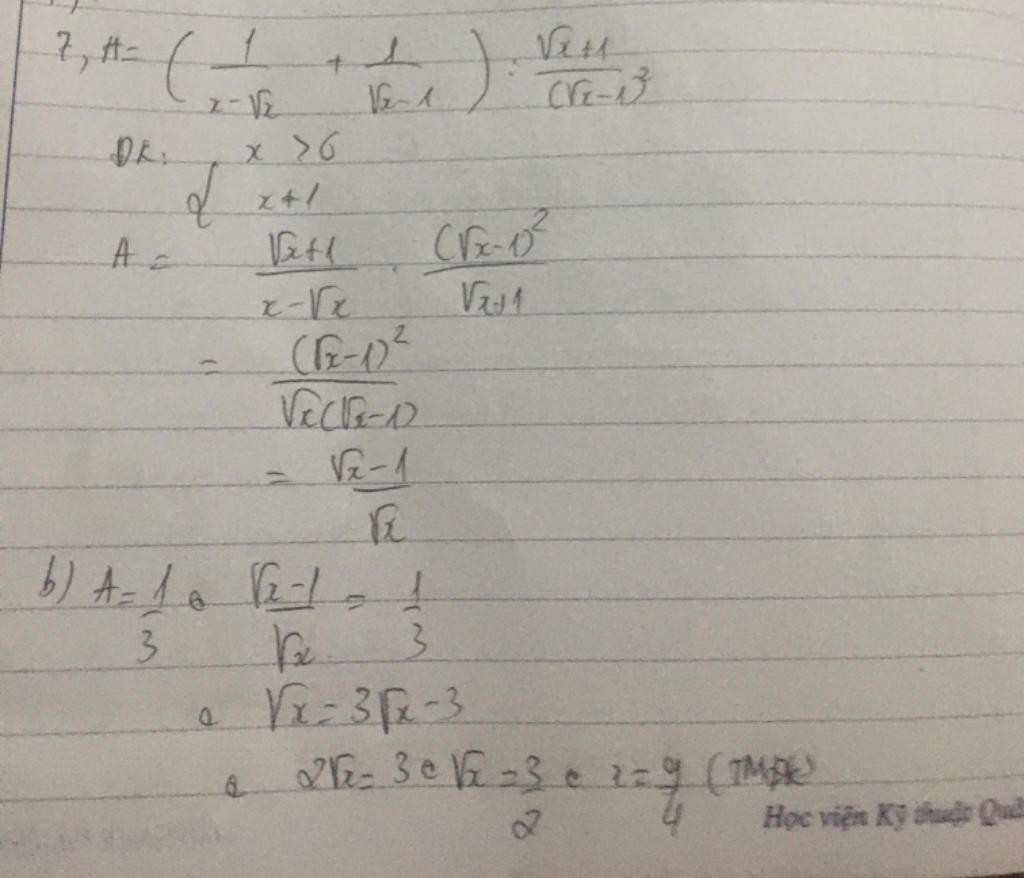 7, A = ( 1/(x-√x) + 1/(√x-1) ) : (√x+1)/(√x-1)²
ĐK: { x > 0
x ≠ 1
A = (√x+1)/(x-√x) . (√x-1)²/(√x+1)
= (√x-1)²/(√x(√x-1))
= (√x-1)/√x
b) A = 1/3 ⇔ (√x-1)/√x = 1/3
⇔ √x = 3√x - 3
⇔ 2√x = 3 ⇔ √x = 3/2 ⇔ x = 9/4 (TMĐK)
Học viện Kỹ thuật Quâ